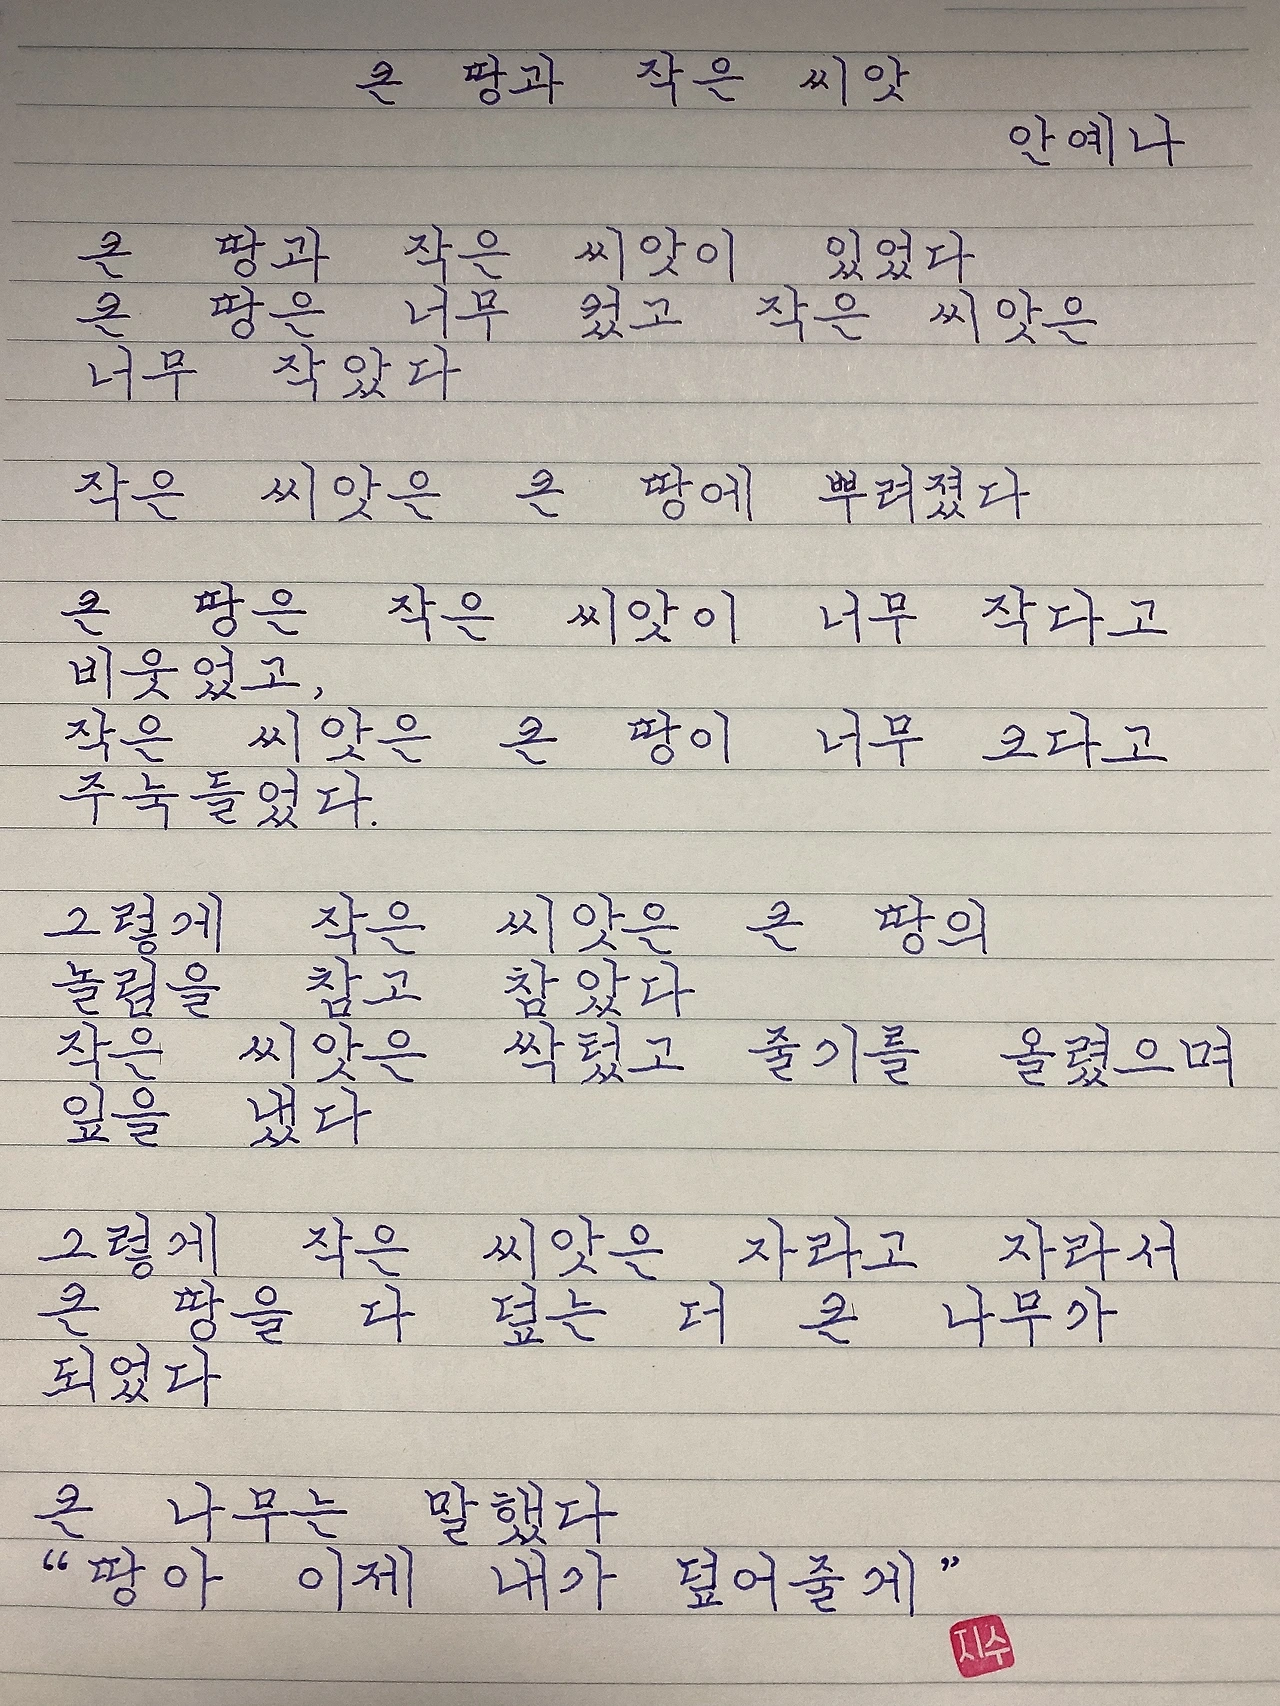 큰 땅과 작은 씨앗
안예나
큰 땅과 작은 씨앗이 있었다
큰 땅은 너무 컸고 작은 씨앗은
너무 작았다
작은 씨앗은 큰 땅에 뿌려졌다
큰 땅은 작은 씨앗이 너무 작다고
비웃었고,
작은 씨앗은 큰 땅이 너무 크다고
주눅들었다.
그렇게 작은 씨앗은 큰 땅의
놀림을 참고 참았다
작은 씨앗은 싹텄고 줄기를 올렸으며
잎을 냈다
그렇게 작은 씨앗은 자라고 자라서
큰 땅을 다 덮는 더 큰 나무가
되었다
큰 나무는 말했다
“땅아 이제 내가 덮어줄게”
지수